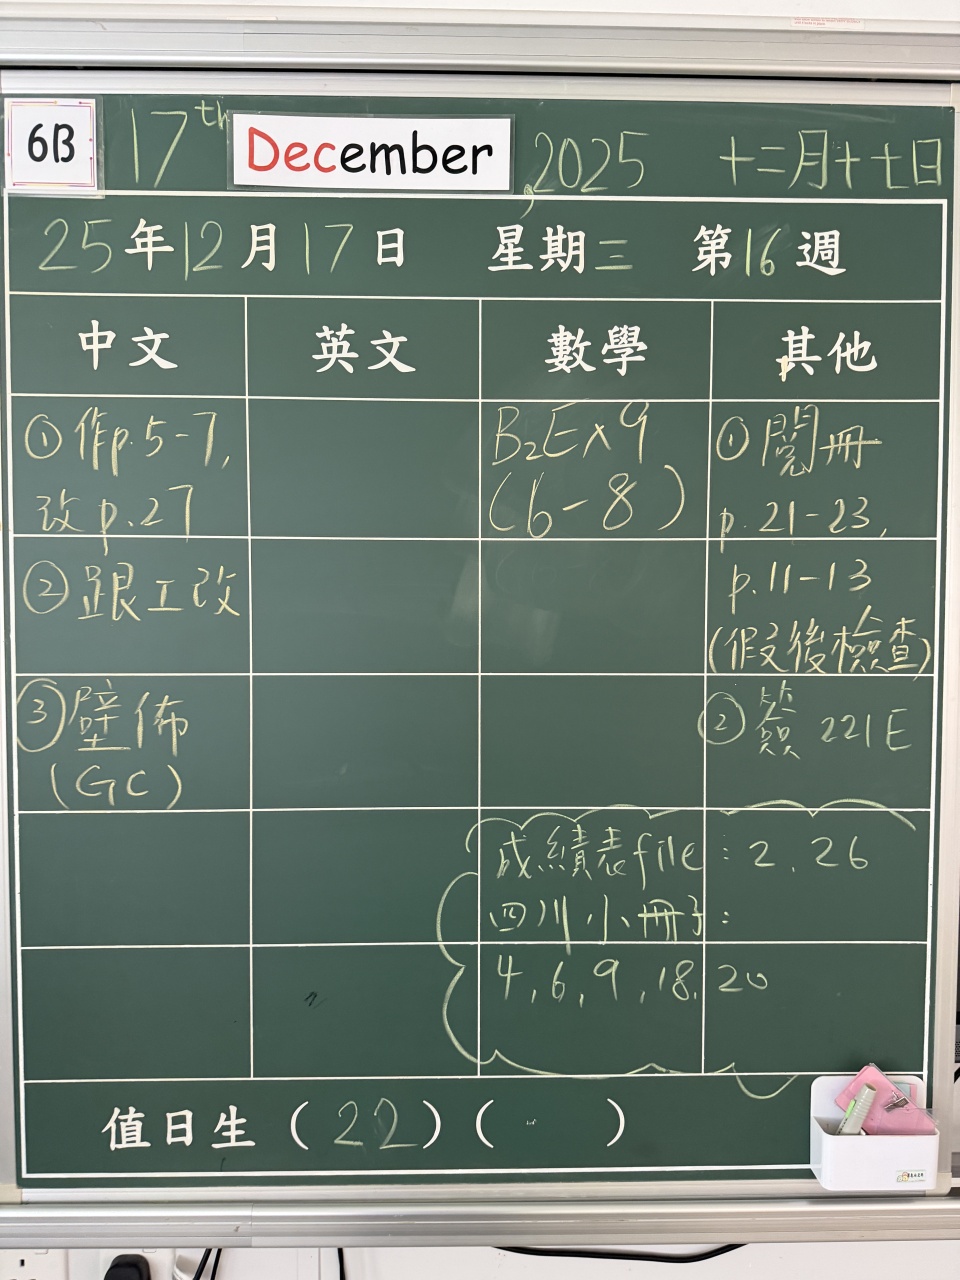 6B 17th December, 2025 十二月十七日
25年12月17日 星期三 第16週
中文 英文 數學 其他
①作p.5-7,
改p.27
②跟工改
③壁佈
(GC)
B2Ex9
(6-8)
①閱冊
p.21-23,
p.11-13
(假後檢查)
②簽 221E
成績表file:2,26
四川小冊子:
4,6,9,18,20
值日生(22)( )